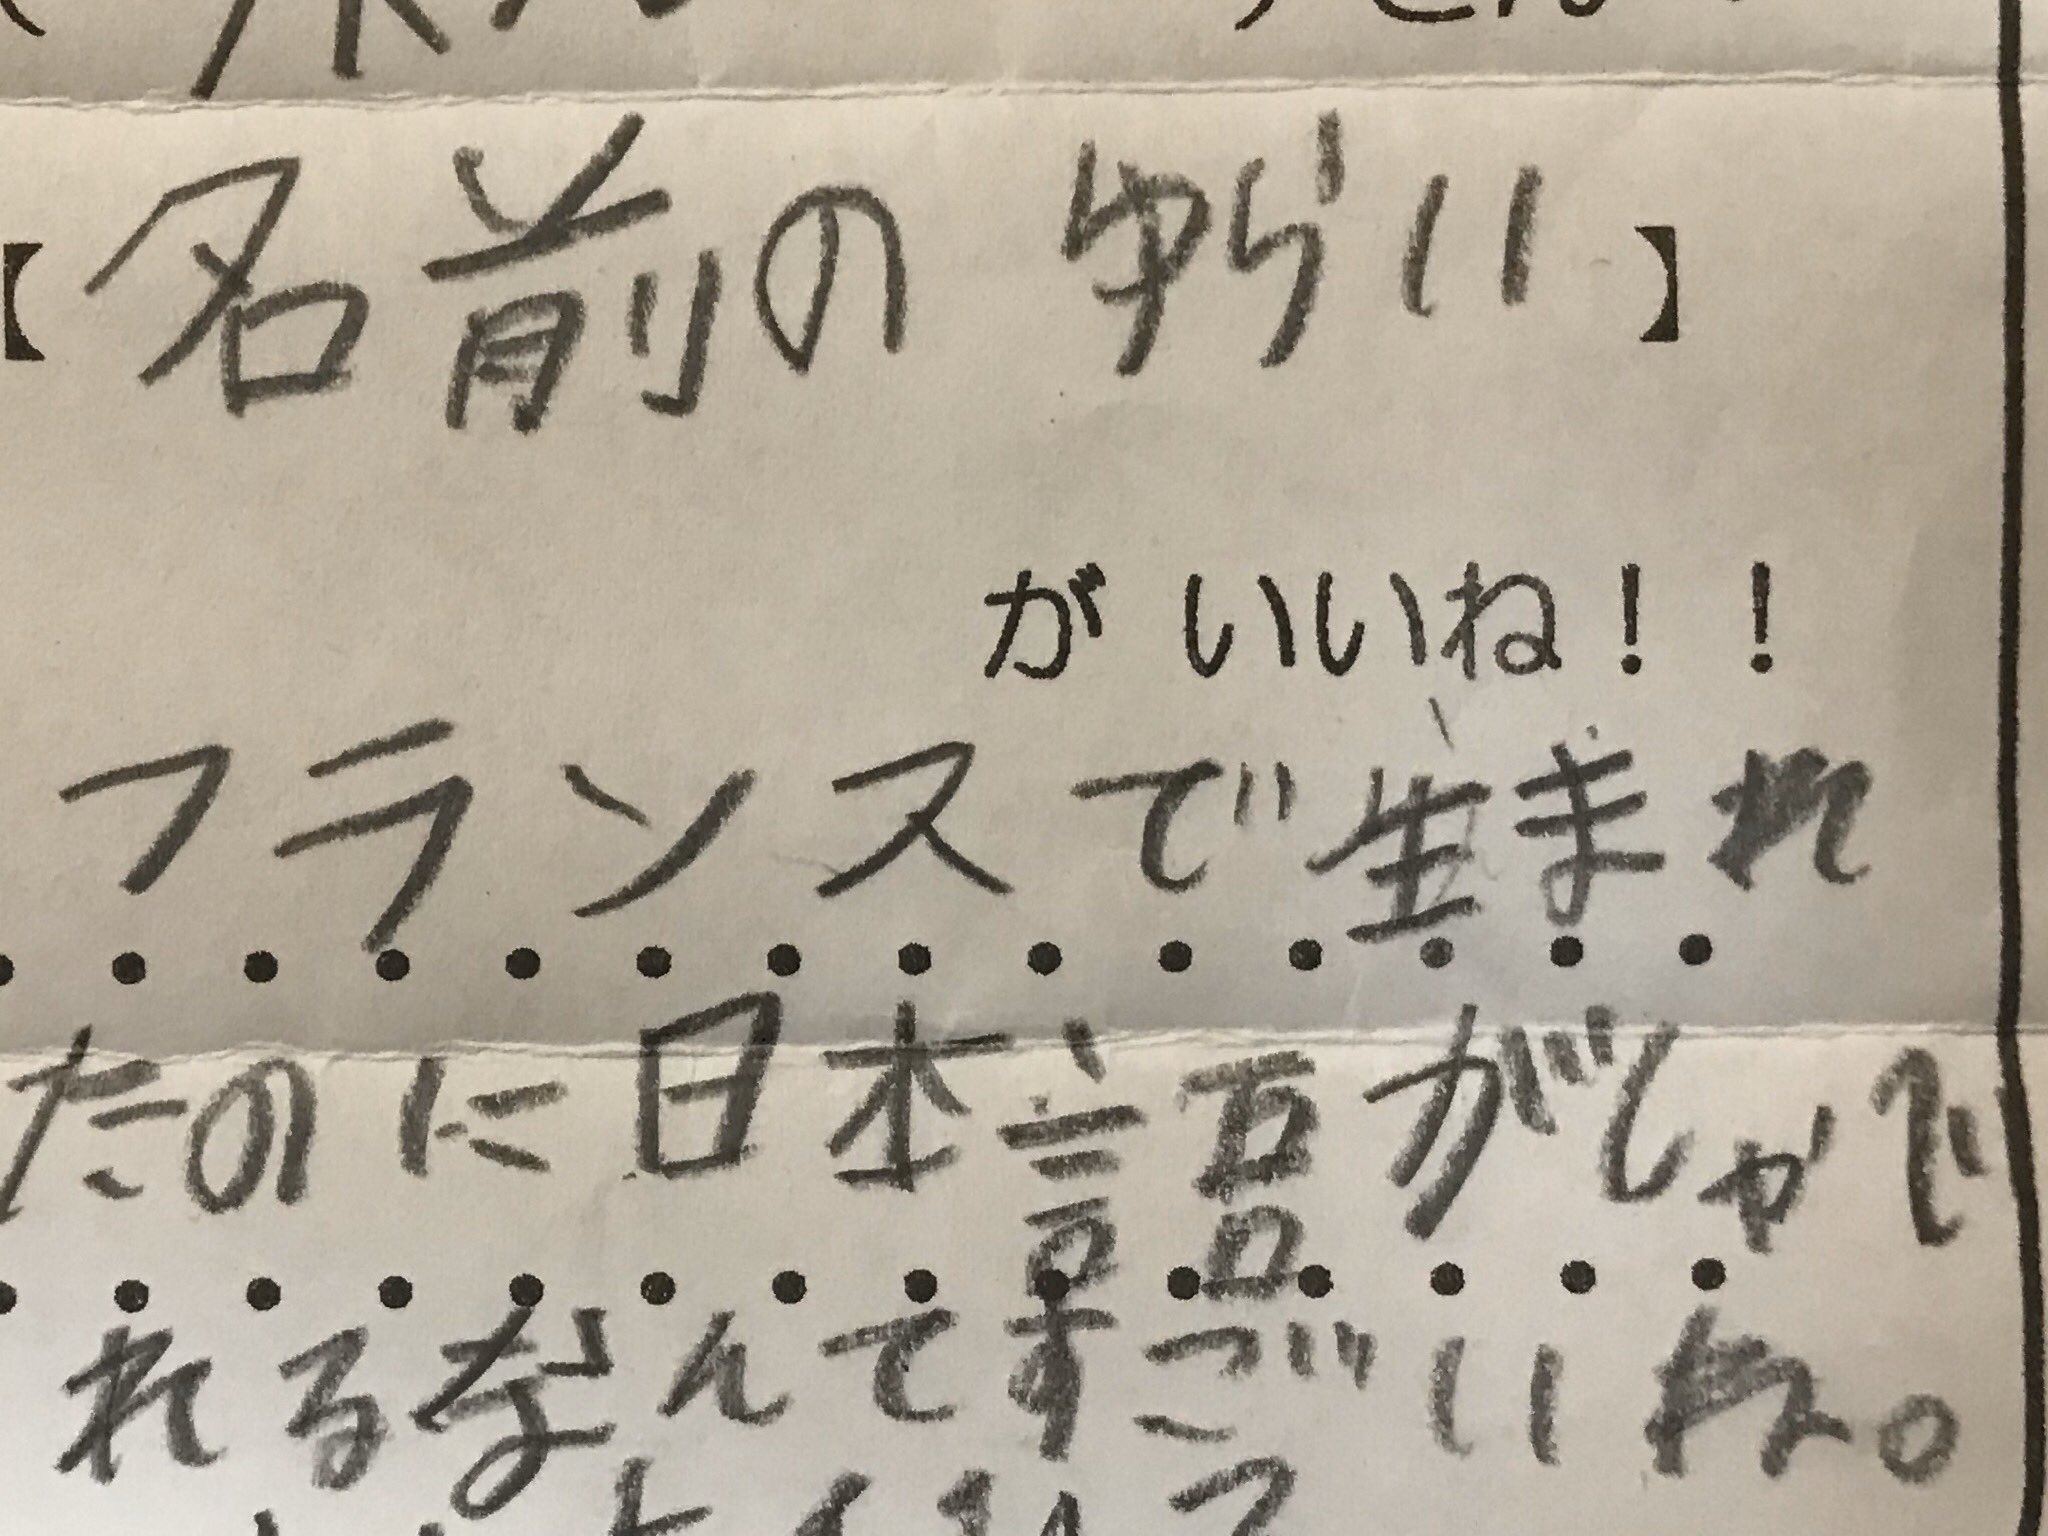 【名前のゆらい】
がいいね！！
フランスで生まれ
たのに日本語がしゃべ
れるなんてすごいね。